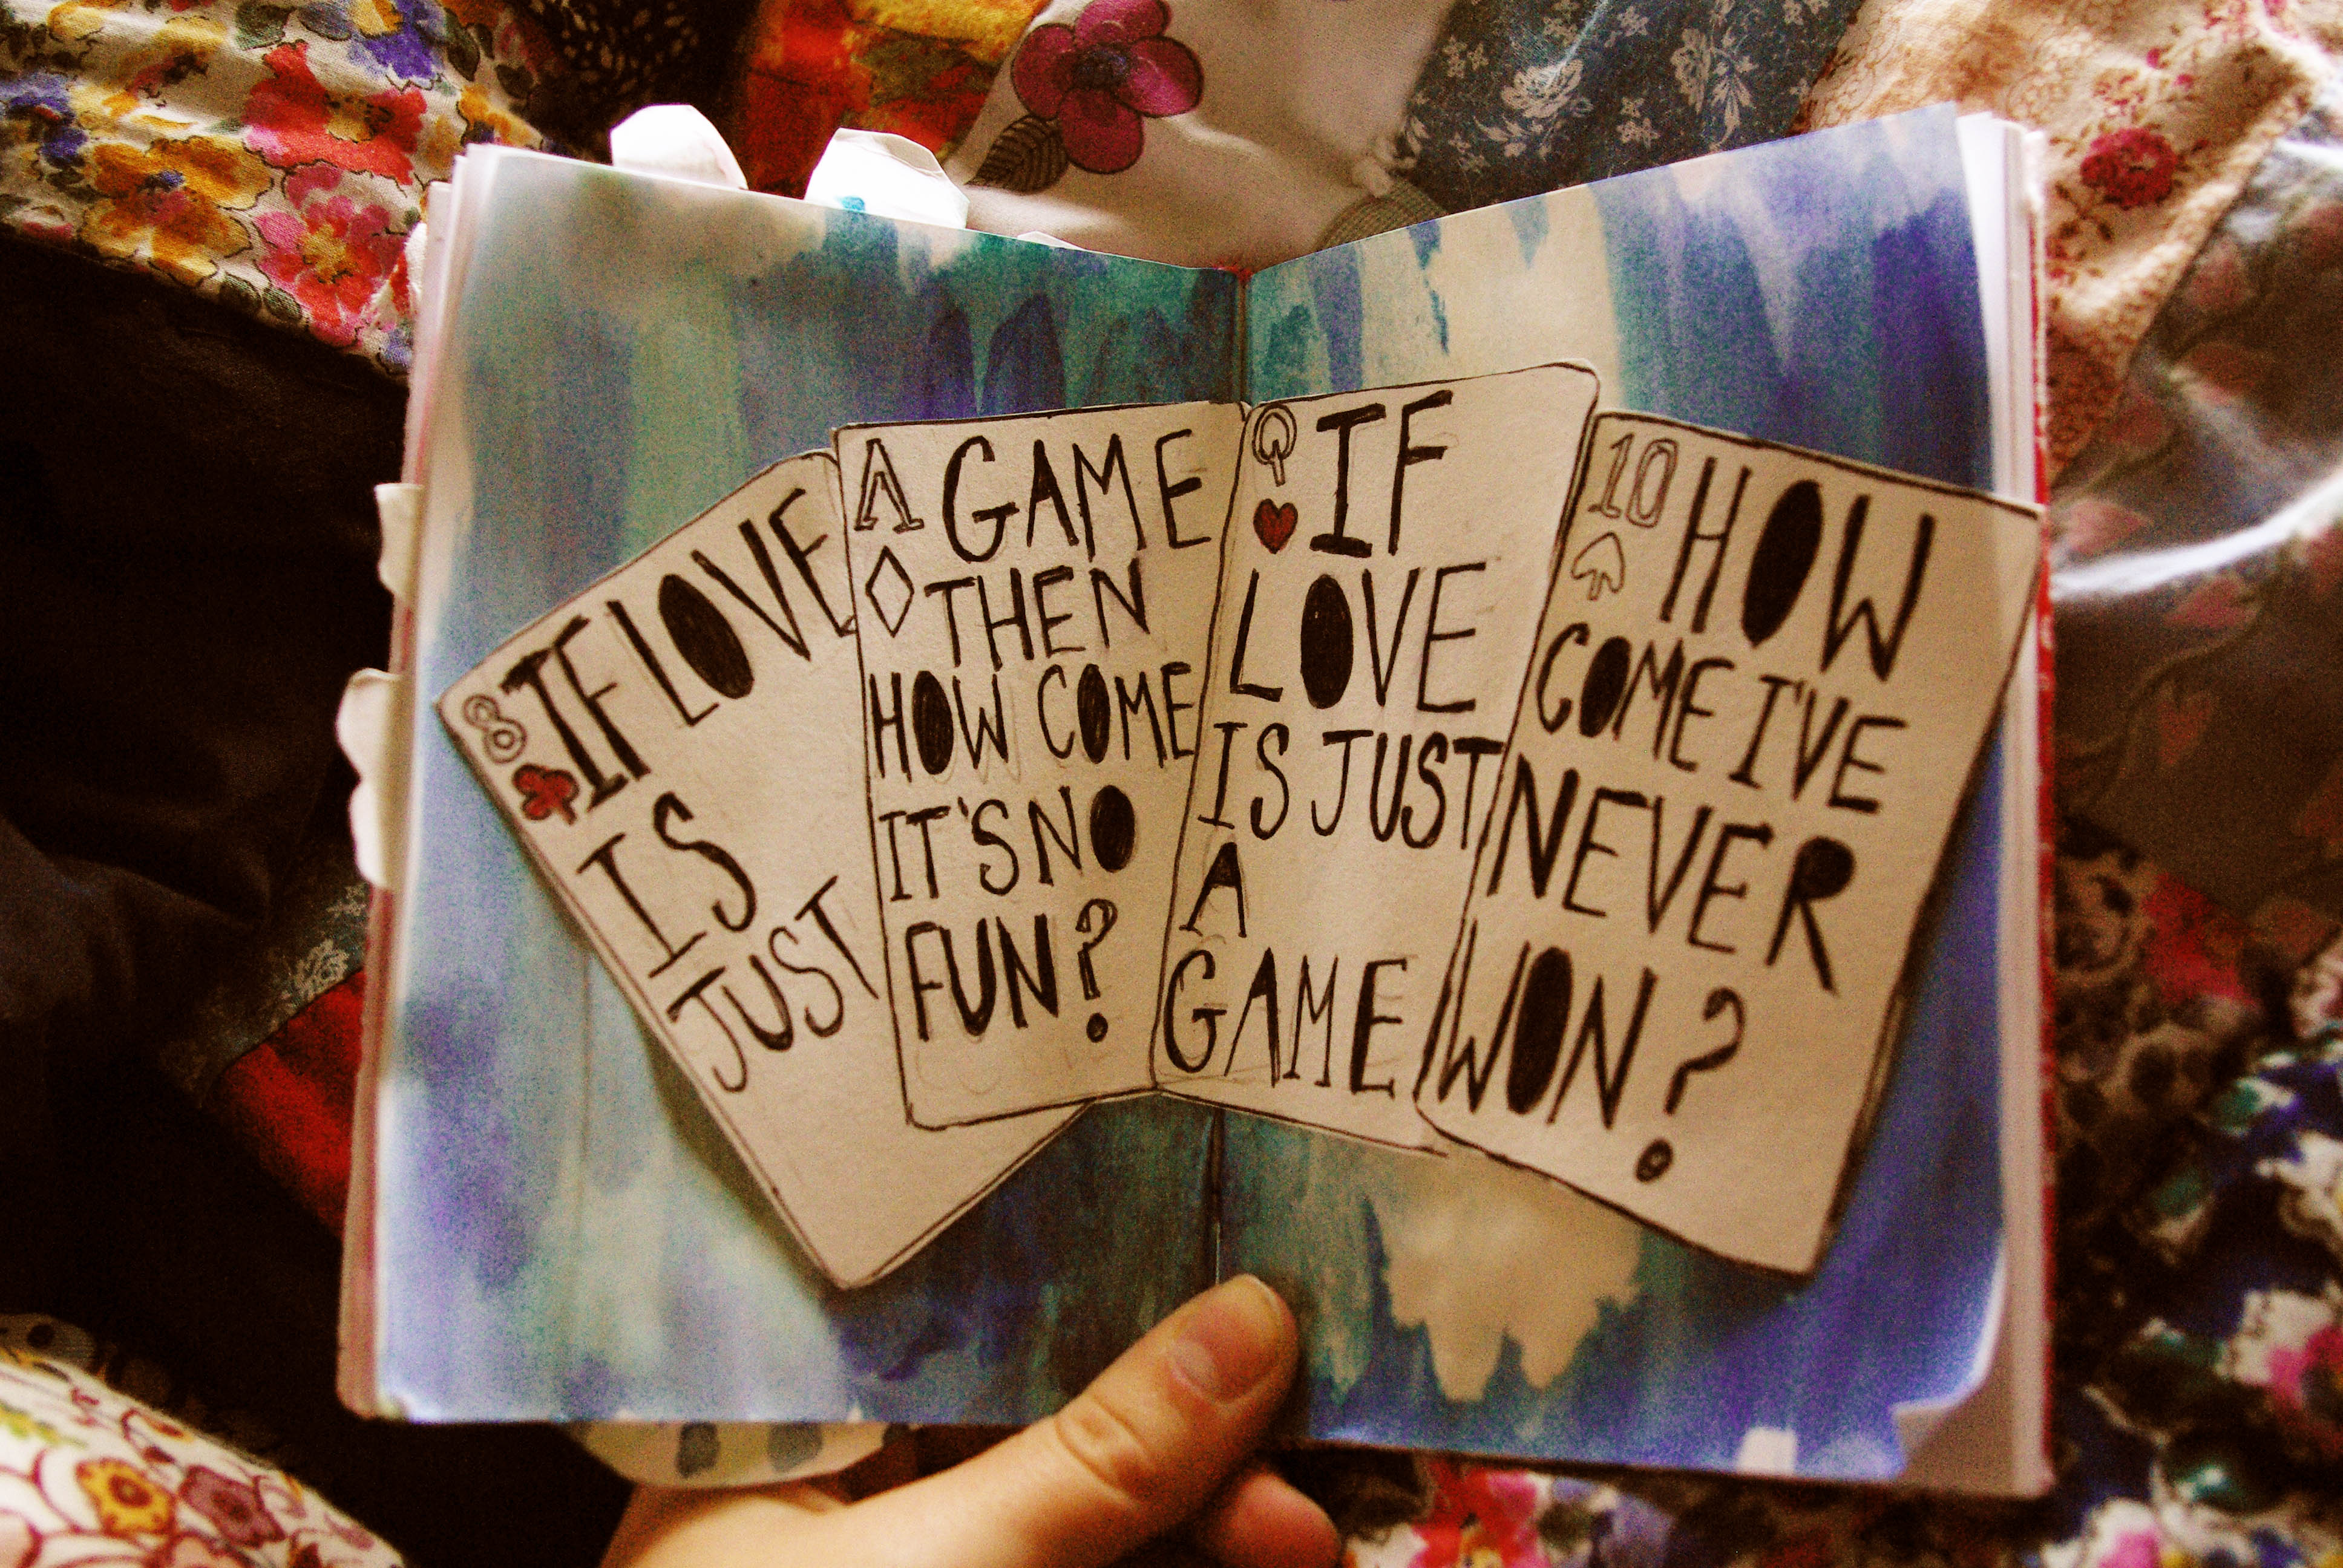 8
IF LOVE
IS
JUST
A
GAME
THEN
HOW COME
IT'S NO
FUN?
Q
IF
LOVE
IS JUST
A
GAME
10
HOW
COME I'VE
NEVER
WON?